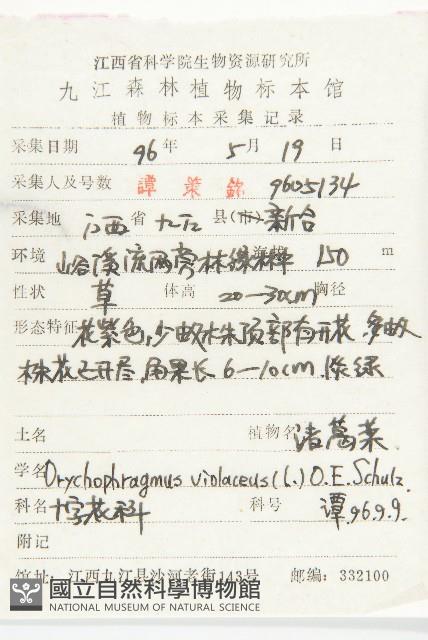 江西省科学院生物资源研究所
九江森林植物标本馆
植物标本采集记录
采集日期 96年 5月 19日
采集人及号数 譚策銘 9605134
采集地 江西省 九江县(市) 新合
环境 峪溪流两旁林缘 海拔 150 m
性状 草 体高 20-30cm 胸径
形态特征 花紫色,少数株顶部有开花,多数
株花已开尽,角果长6-10cm,淡绿
土名 植物名 诸葛菜
学名 Orychophragmus violaceus (L.) O.E.Schulz
科名 十字花科 科号 譚.96.9.9.
附记
馆址:江西九江县沙河老街143号 邮编:332100
國立自然科學博物館
NATIONAL MUSEUM OF NATURAL SCIENCE